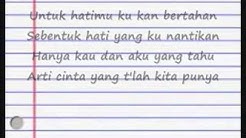 Untuk hatimu ku kan bertahan
Sebentuk hati yang ku nantikan
Hanya kau dan aku yang tahu
Arti cinta yang t'lah kita punya